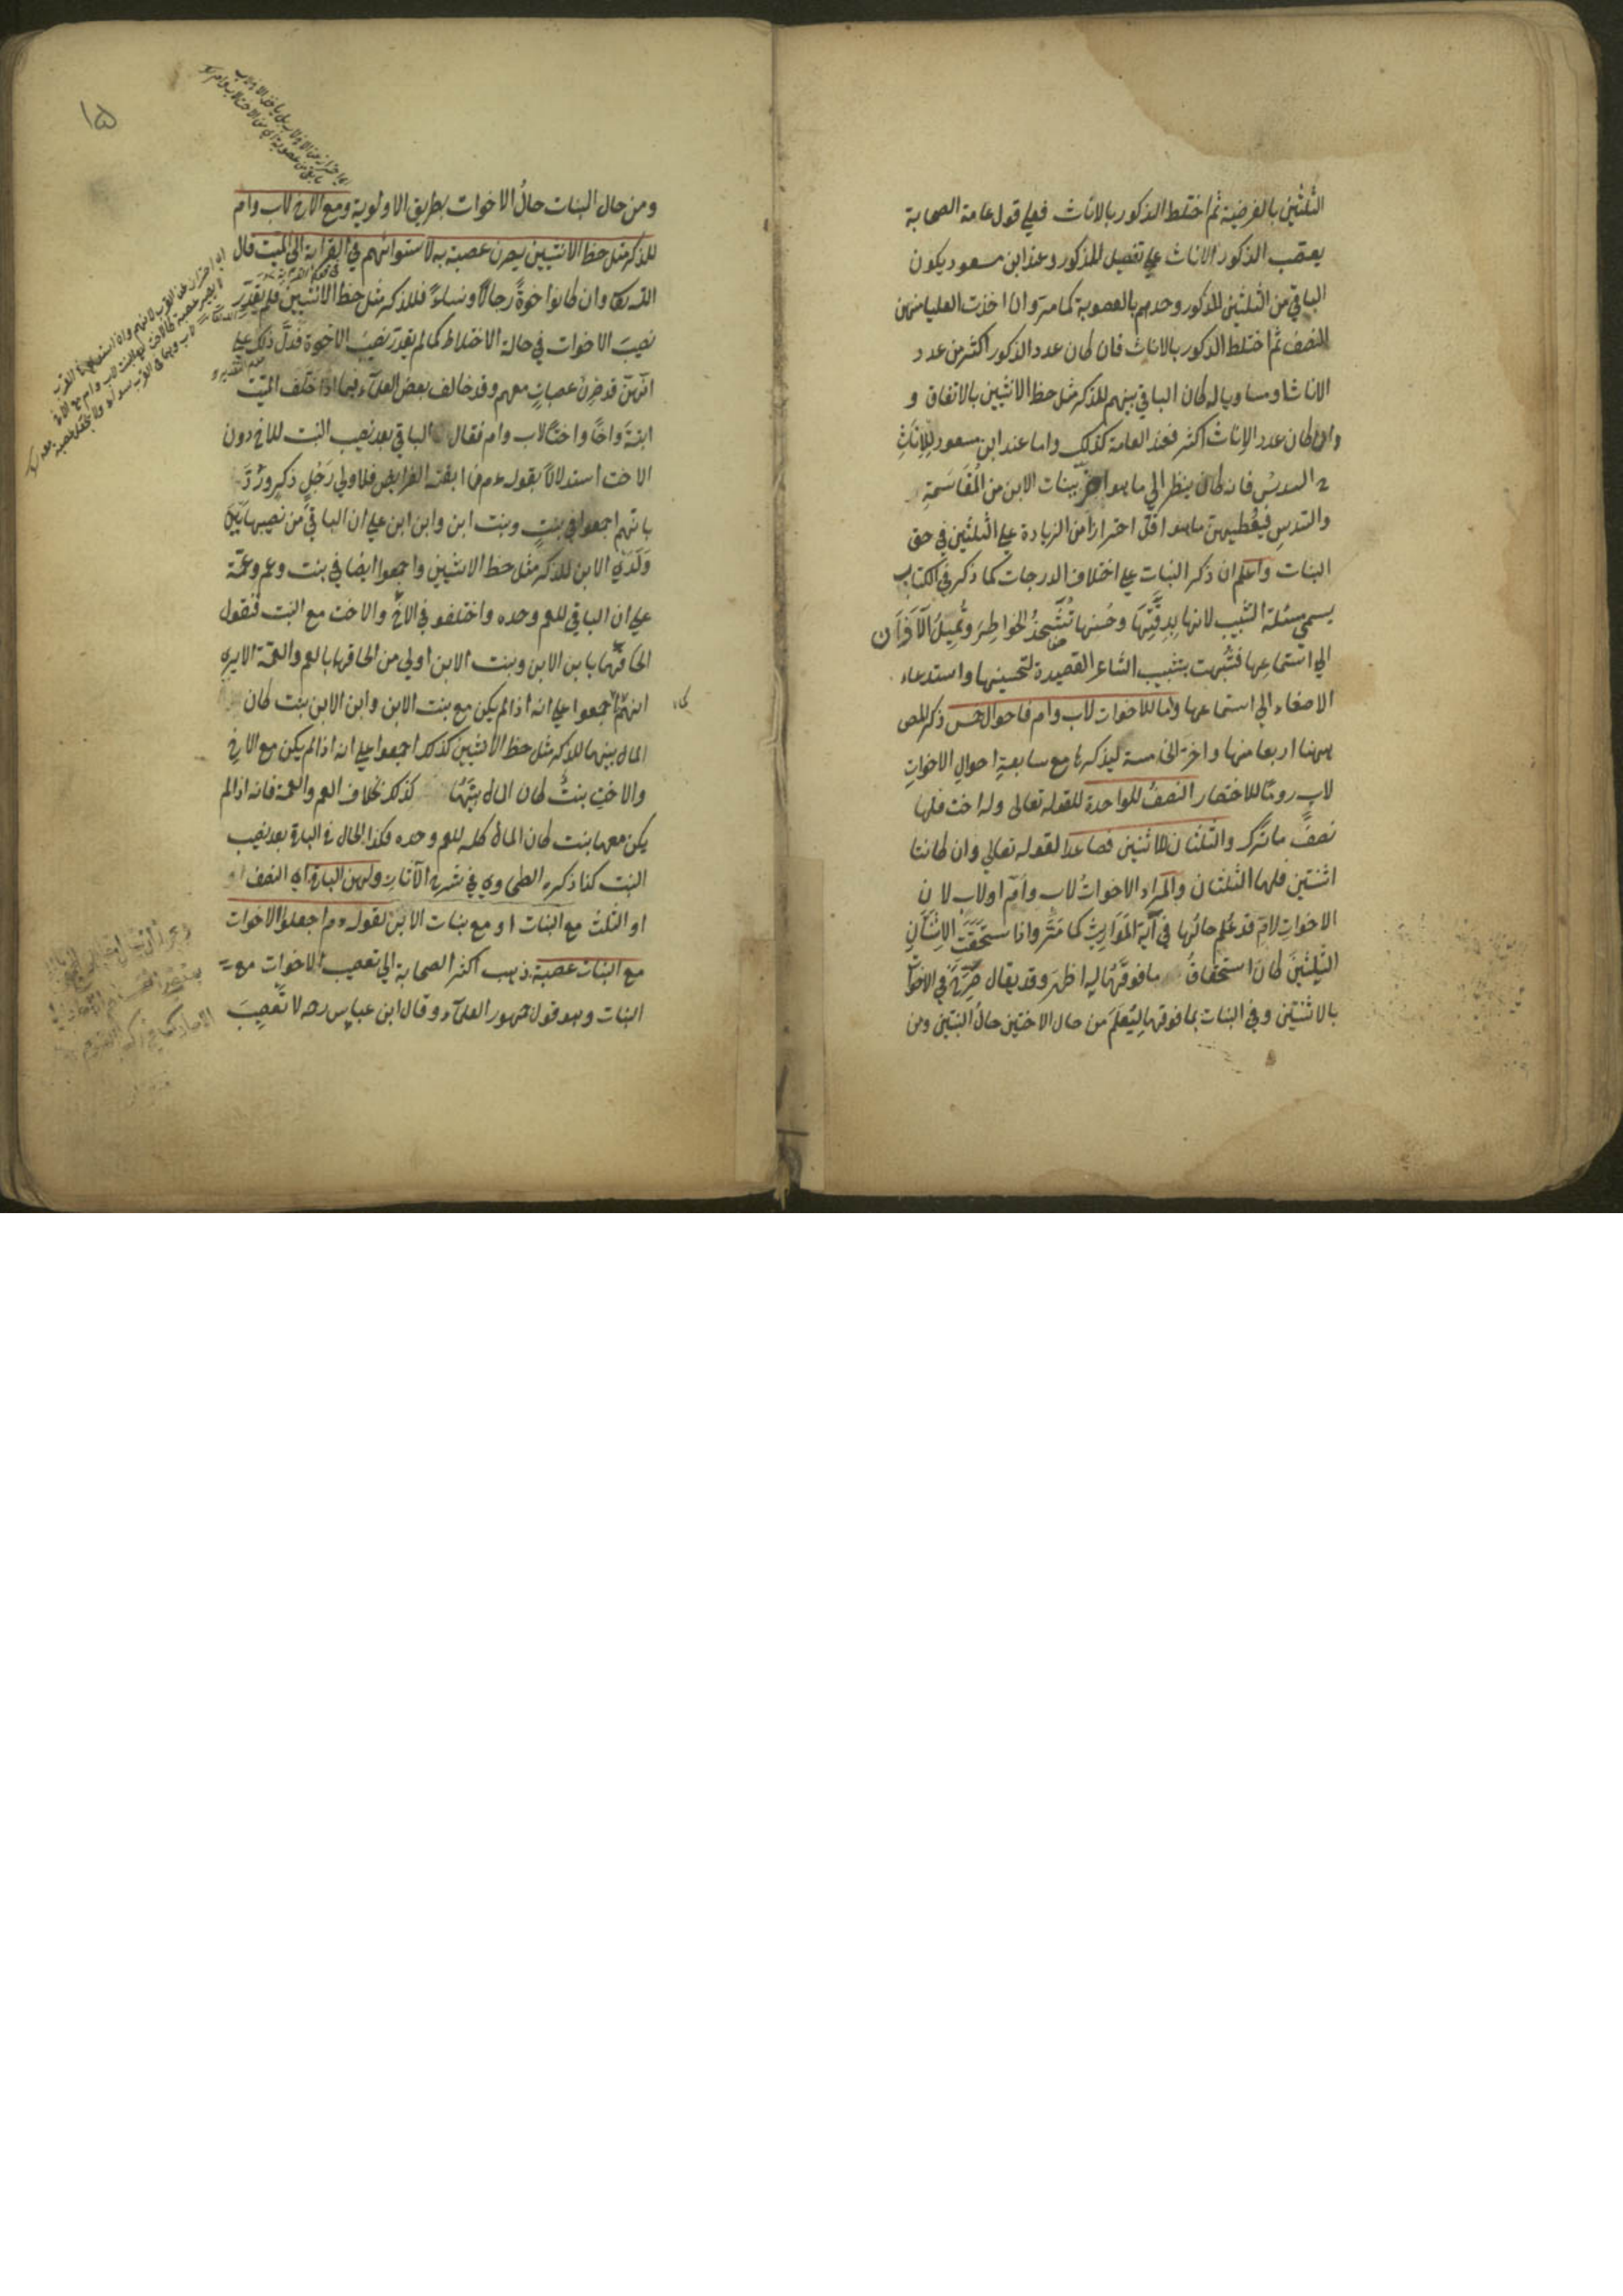 الثلثين بالفرضية ثم اختلط الذكور بالاناث فعلي قول عامة الصحابة
يعصب الذكور الاناث علي تفصيل المذكور وعند ابن مسعود يكون
الباقي من الثلثين للذكور وحدهم بالعصوبة كما مر وان اخذت العليا منهن
النصف ثم اختلط الذكور بالاناث فان كان عدد الذكور اكثر من عدد
الاناث او مساويا له كان الباقي بينهم للذكر مثل حظ الانثيين بالاتفاق و
وان كان عدد الاناث اكثر فعند العامة كذلك واما عند ابن مسعود للاناث
السدس فانه كان ينظر الي ما هو اضر ببنات الابن من المقاسمة
والسدس فيعطيهن ما هو اقل احترازا من الزيادة علي الثلثين في حق
البنات واعلم ان ذكر البنات علي اختلاف الدرجات كما ذكر في الكتاب
يسمي مسئلة التشبيب لانها بدقتها وحسنها تشحذ الخواطر وتميل الآذان
الي استماعها فشبهت بتشبيب الشاعر القصيدة لتحسينها واستدعاء
الاصغاء الي استماعها واما للاخوات لاب وام فاحوال خمس ذكر المص
ههنا اربعا منها واخر الخامسة ليذكرها مع سابعة احوال الاخوات
لاب روما للاختصار النصف للواحدة لقوله تعالى وله اخت فلها
نصف ما ترك والثلثان للاثنتين فصاعدا لقوله تعالي وان كانتا
اثنتين فلهما الثلثان والمراد الاخوات لاب وام او لاب لان
الاخوات لام قد علم حالها في آية المواريث كما مر واذا استحقت الاثنتان
الثلثين كان استحقاق ما فوقهما له اظهر وقد يقال صرح في الاخوات
بالاثنتين وفي البنات بما فوقها ليعلم من حال الاختين حال البنتين ومن
ومن حال البنات حال الاخوات بطريق الاولوية ومع الاخ لاب وام
للذكر مثل حظ الانثيين يصرن عصبة به لاستوائهم في القرابة الي الميت قال
الله تعا وان كانوا اخوة رجالا ونساء فللذكر مثل حظ الانثيين فلم يقدر
نصيب الاخوات في حالة الاختلاط كما لم يقدر نصيب الاخوة فدل ذلك علي
انهن قد صرن عصبات معهم وقد خالف بعض العلماء فيما اذا خلف الميت
ابنة واخا واختا لاب وام فقال الباقي بعد نصيب البنت للاخ دون
الاخت استدلالا بقوله عم فما ابقته الفرايض فلاولي رجل ذكر ورد
بانهم اجمعوا في بنت وبنت ابن وابن ابن علي ان الباقي من نصيبها بين
ولدي الابن للذكر مثل حظ الانثيين واجمعوا ايضا في بنت وعم وعمة
علي ان الباقي للعم وحده واختلفو في الاخ والاخت مع البنت فنقول
الحاقهما بابن الابن وبنت الابن اولي من الحاقهما بالعم والعمة الا يري
انهم اجمعوا علي انه اذا لم يكن مع بنت الابن وابن الابن بنت كان
المال بينهما للذكر مثل حظ الانثيين كذلك اجمعوا علي انه اذا لم يكن مع الاخ
والاخت بنت كان المال بينهما كذلك بخلاف العم والعمة فانه اذا لم
يكن معهما بنت كان المال كله للعم وحده فكذا الحال في الباقي بعد نصيب
البنت كذا ذكره الطحاوي في شرح الآثار ولهن الباقي اي النصف او
او الثلث مع البنات او مع بنات الابن لقوله عم اجعلوا الاخوات
مع البنات عصبة ذهب اكثر الصحابة الي تعصيب الاخوات مع
البنات وهو قول جمهور العلماء وقال ابن عباس رضه لا تعصيب
١٥